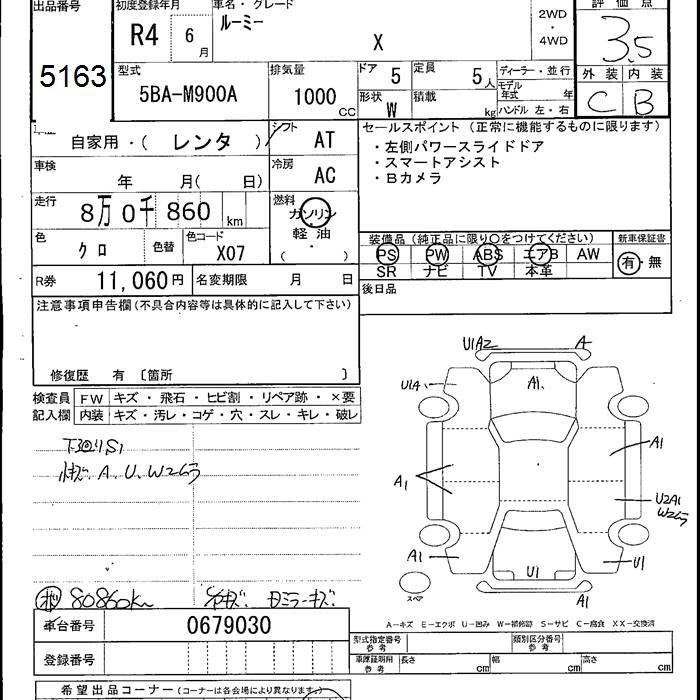 出品番号
5163
初度登録年月
R4 6月
車名・グレード
ルーミー
X
2WD
・
4WD
評価点
3.5
外装 内装
C B
型式
5BA-M900A
排気量
1000 CC
ドア 5
定員 5人
形状 W
積載 kg
ディーラー・並行
モデル年式 年
ハンドル 左・右
自家用・( レンタ )
シフト AT
車検
年 月( 日)
冷房 AC
走行
8万0千860 km
燃料
ガソリン
軽油
・
( )
色
クロ
色替
色コード
X07
R券 11,060円
名変期限 月 日
セールスポイント(正常に機能するものに限ります)
・左側パワースライドドア
・スマートアシスト
・Bカメラ
装備品(純正品に限り○をつけてください)
PS PW ABS エアB AW
SR ナビ TV 本革
新車保証書
有・無
後日品
注意事項申告欄(不具合内容等は具体的に記入して下さい)
修復歴 有 〔箇所 〕
検査員記入欄
FW キズ・飛石・ヒビ割・リペア跡・×要
内装 キズ・汚レ・コゲ・穴・スレ・キレ・破レ
下廻りS1
A、U、W2ムラ
80860km
ミラーキズ
U1A2 A
U1A A1
A1
A1
U2A1
W2ムラ
A1 U1 U1
A1
スペア
A-キズ E-エクボ U-凹み W-補修跡 S-サビ C-腐食 XX-交換済
車台番号 0679030
登録番号
型式指定番号 参考
類別区分番号 参考
車庫証明用 参考
長さ cm 幅 cm 高さ cm
希望出品コーナー(コーナーは各会場により異なります。)